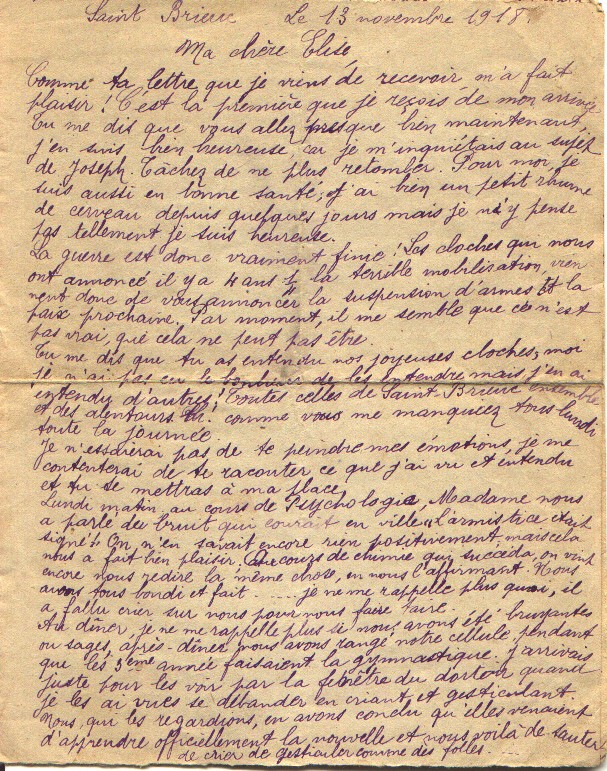 Saint Brieuc Le 13 novembre 1918.
Ma chère Elise,
Comme ta lettre, que je viens de recevoir, m'a fait
plaisir ! C'est la première que je reçois de mon arrivée
Tu me dis que vous allez presque bien maintenant,
j'en suis bien heureuse, car je m'inquiétais au sujet
de Joseph. Tâchez de ne plus retomber. Pour moi, je
suis aussi en bonne santé ; j'ai bien un petit rhume
de cerveau depuis quelques jours mais je n'y pense
pas tellement je suis heureuse.
La guerre est donc vraiment finie ! Les cloches qui nous
ont annoncé il y a 4 ans ½ la terrible mobilisation, vien
nent donc de vous annoncer la suspension d'armes et la
paix prochaine. Par moment, il me semble que ce n'est
pas vrai, que cela ne peut pas être.
Tu me dis que tu as entendu nos joyeuses cloches, moi
je n'ai pas eu le bonheur de les entendre mais j'en ai
entendu d'autres ! Toutes celles de Saint-Brieuc ensemble
et des alentours. Ah ! comme vous me manquiez tous lundi
toute la journée.
Je n'essaierai pas de te peindre mes émotions, je me
contenterai de te raconter ce que j'ai vu et entendu
et tu te mettras à ma place.
Lundi matin, au cours de Psychologie, Madame nous
a parlé du bruit qui courait en ville "L'armistice était
signé"! On n'en savait encore rien positivement, mais cela
nous a fait bien plaisir. Au cours de chimie qui succéda, on vint
encore nous redire la même chose, en nous l'affirmant. Nous
avons tous bondi et fait ..... je ne me rappelle plus quoi, il
a fallu crier sur nous pour nous faire taire.
Au dîner, je ne me rappelle plus si nous avons été bruyantes
ou sages, après-dîner nous avons rangé notre cellule, pendant
que les 3ème année faisaient la gymnastique. J'arrivais
juste pour les voir par la fenêtre du dortoir quand
je les ai vues se débander en criant et gesticulant.
Nous, qui les regardions, en avons conclu qu'elles venaient
d'apprendre officiellement la nouvelle et nous voilà de sauter
de crier de gesticuler comme des folles.